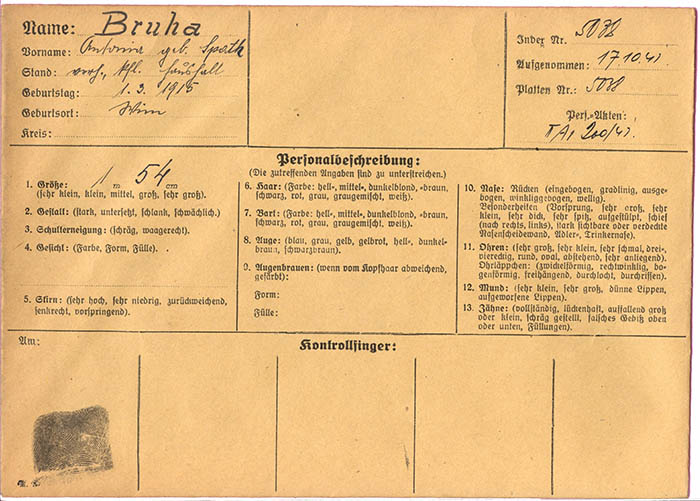 Name: Bruha
Vorname: Antonia geb. Spath
Stand: verh., kfl. Haushalt
Geburtstag: 1. 3. 1915
Geburtsort: Wien
Kreis:
Index Nr. 5038
Aufgenommen: 17.10.41
Platten Nr.: 5038
Pers.-Akten:
II A1 200/41
Personalbeschreibung:
(Die zutreffenden Angaben sind zu unterstreichen.)
1. Größe: 1 m 54 cm
(sehr klein, klein, mittel, groß, sehr groß).
2. Gestalt: (stark, untersetzt, schlank, schwächlich).
3. Schulterneigung: (schräg, waagerecht).
4. Gesicht: (Farbe, Form, Fülle).
5. Stirn: (sehr hoch, sehr niedrig, zurückweichend,
senkrecht, vorspringend).
6. Haar: (Farbe: hell-, mittel-, dunkelblond, -braun,
schwarz, rot, grau, graugemischt, weiß).
7. Bart: (Farbe: hell-, mittel-, dunkelblond, -braun,
schwarz, rot, grau, graugemischt, weiß).
8. Auge: (blau, grau, gelb, gelbrot, hell-, dunkel-
braun, schwarzbraun).
9. Augenbrauen: (wenn vom Kopfhaar abweichend,
gefärbt):
Form:
Fülle:
10. Nase: Rücken (eingebogen, gradlinig, ausge-
bogen, winkliggebogen, wellig).
Besonderheiten (Vorsprung, sehr groß, sehr
klein, sehr dick, sehr spitz, aufgestülpt, schief
(nach rechts, links), stark sichtbare oder verdeckte
Nasenscheidewand, Adler-, Trinkernase).
11. Ohren: (sehr groß, sehr klein, sehr schmal, drei-,
viereckig, rund, oval, abstehend, sehr anliegend).
Ohrläppchen: (zwickelförmig, rechtwinklig, bo-
genförmig, freihängend, durchlocht, durchrissen).
12. Mund: (sehr klein, sehr groß, dünne Lippen,
aufgeworfene Lippen).
13. Zähne: (vollständig, lückenhaft, auffallend groß
oder klein, schräg gestellt, falsches Gebiß oben
oder unten, Füllungen).
Am:
Kontrollfinger: